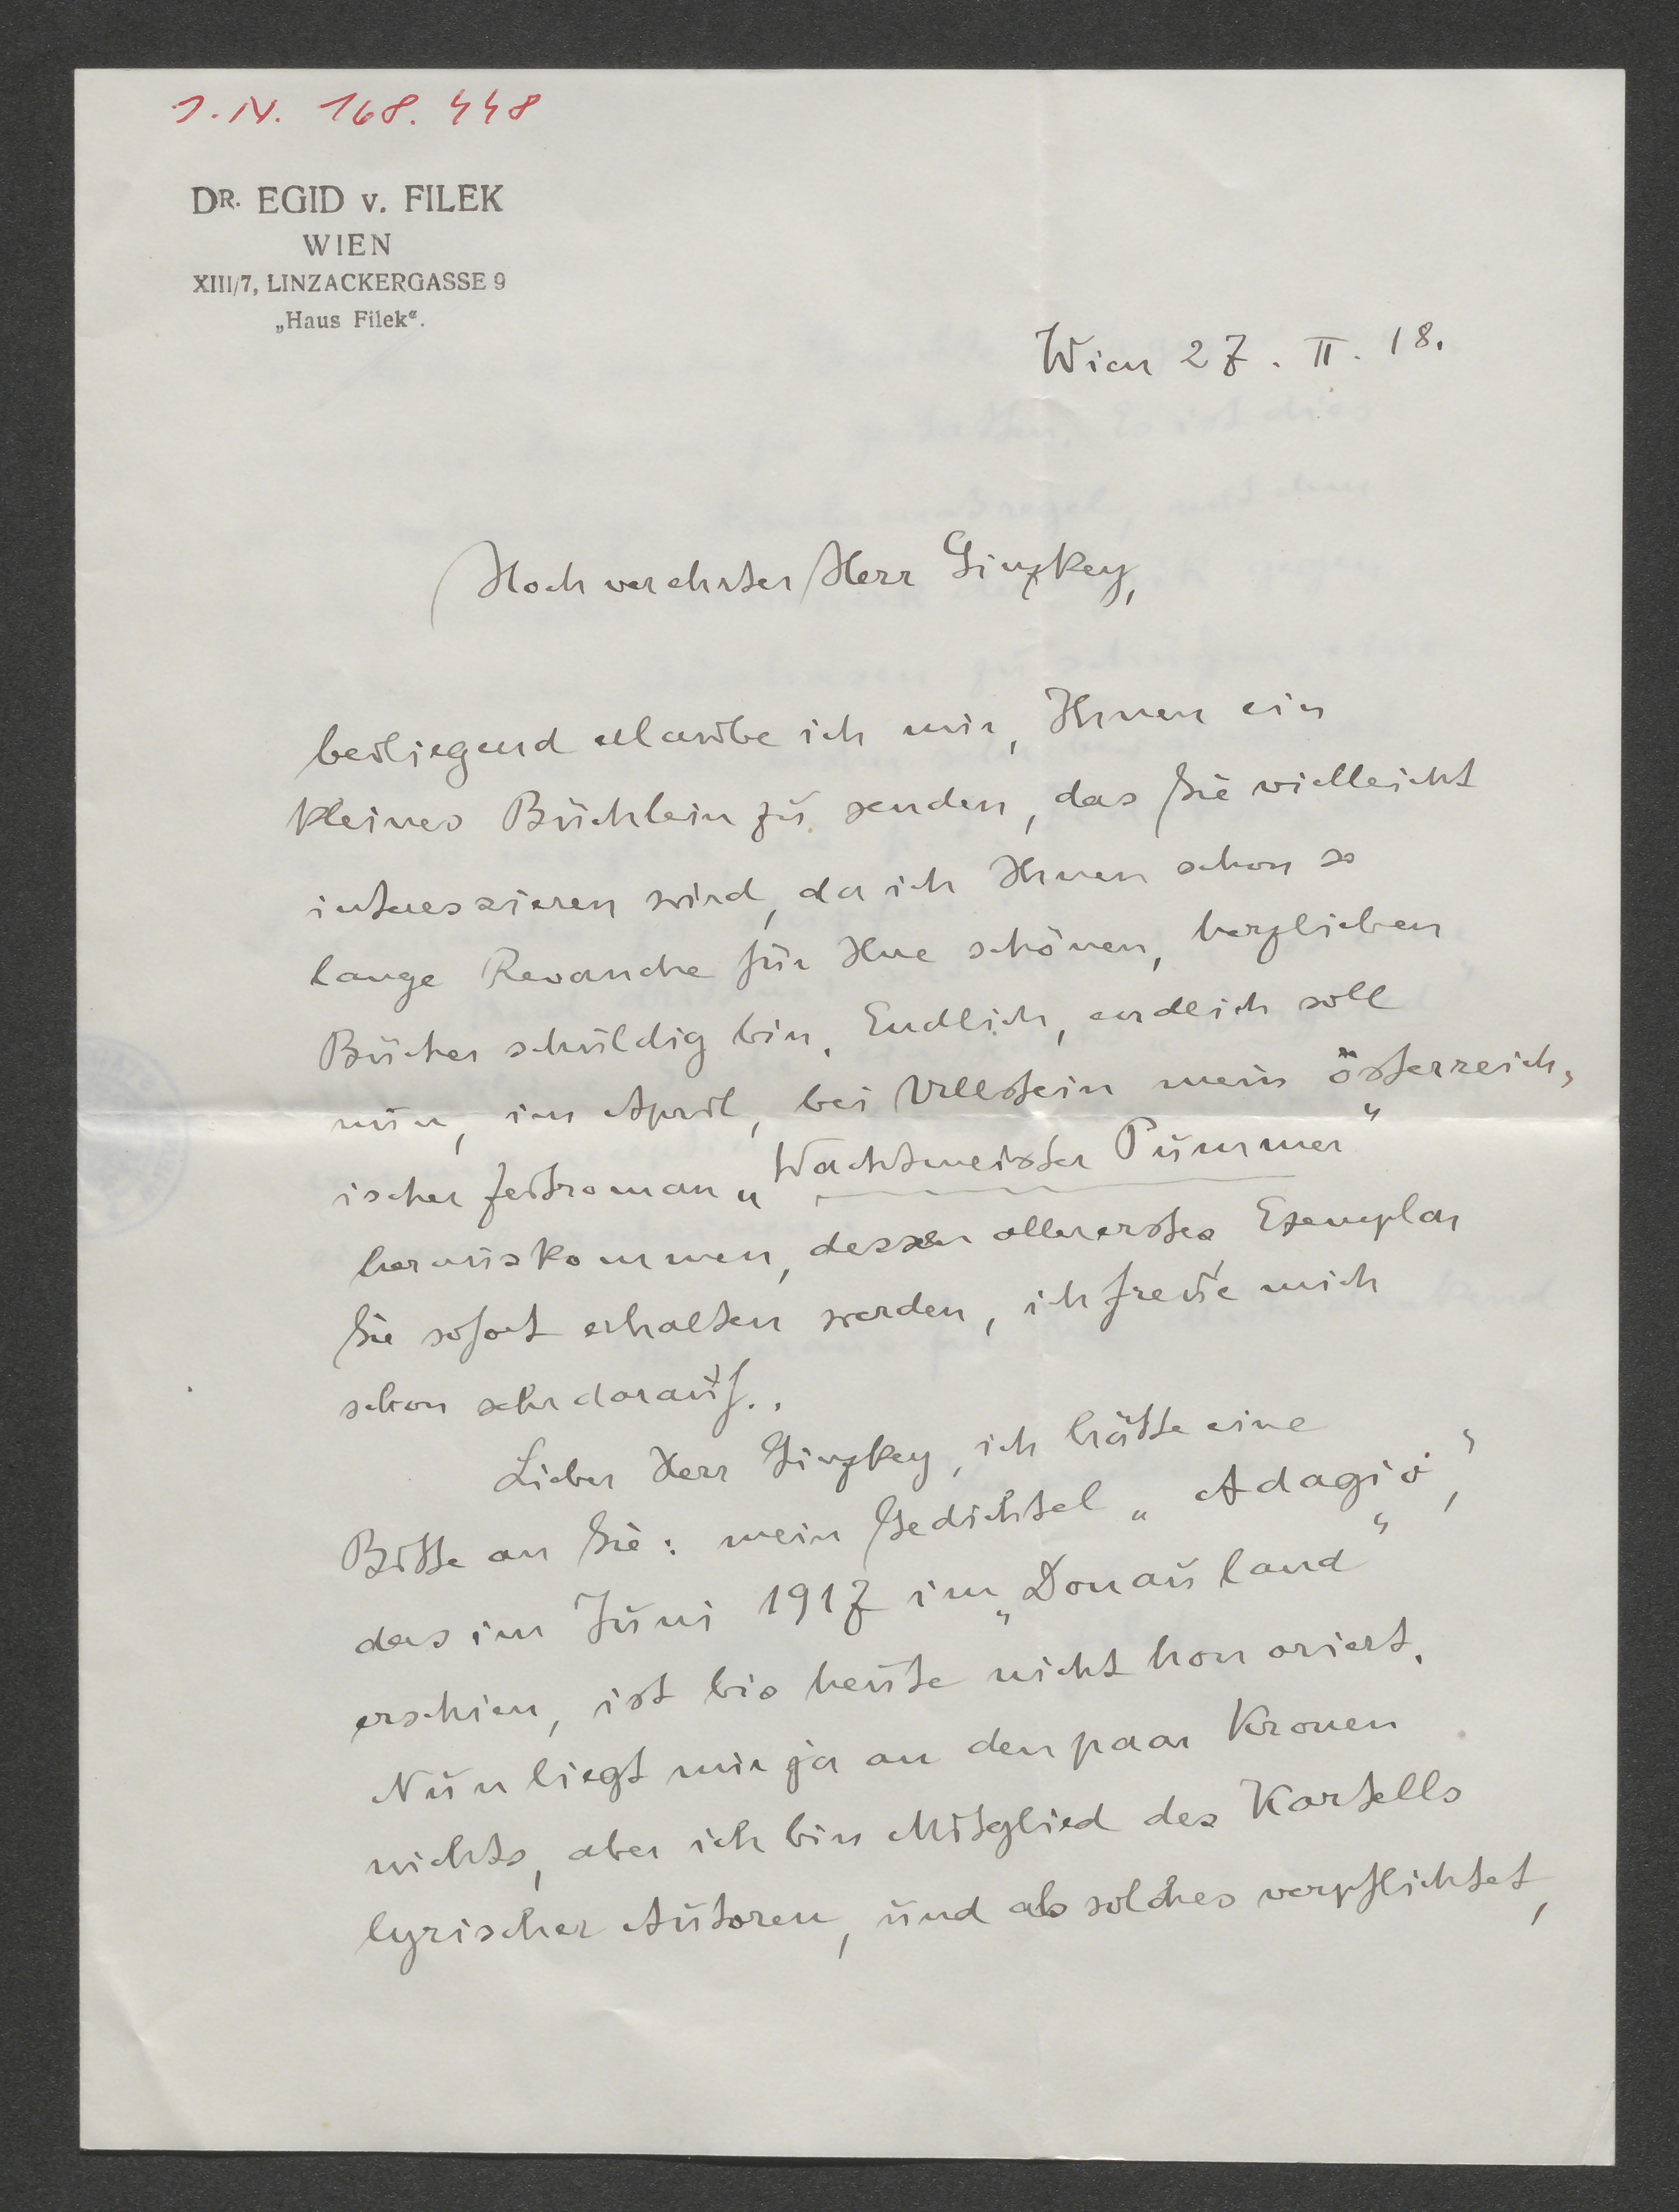 I.N. 168.448
DR. EGID v. FILEK
WIEN
XIII/7, LINZACKERGASSE 9
„Haus Filek“.
Wien 27. II. 18.
Hochverehrter Herr Ginzkey,
beiliegend erlaube ich mir, Ihnen ein
kleines Büchlein zu senden, das Sie vielleicht
interessieren wird, da ich Ihnen schon so
lange Revanche für Ihre schönen, herzlieben
Bücher schuldig bin. Endlich, endlich soll
nun, im April, bei Ullstein mein österreich-
ischer Zeitroman „Wachtmeister Pummer“
herauskommen, dessen allererstes Exemplar
Sie sofort erhalten werden, ich freue mich
schon sehr darauf..
Lieber Herr Ginzkey, ich hätte eine
Bitte an Sie: mein Gedichtel „Adagio“,
das im Juni 1917 im „Donauland“
erschien, ist bis heute nicht honoriert.
Nun liegt mir ja an den paar Kronen
nichts, aber ich bin Mitglied des Kartells
lyrischer Autoren, und als solches verpflichtet,